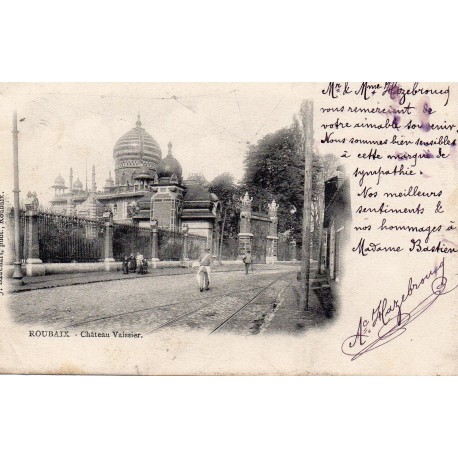 Mr & Mme Hazebroucq
vous remercient de
votre aimable souvenir.
Nous sommes bien sensibles
à cette marque de
sympathie.
Nos meilleurs
sentiments &
nos hommages à
Madame Bastien
Ac. Hazebroucq
ROUBAIX - Château Vaissier.
phot., Roubaix